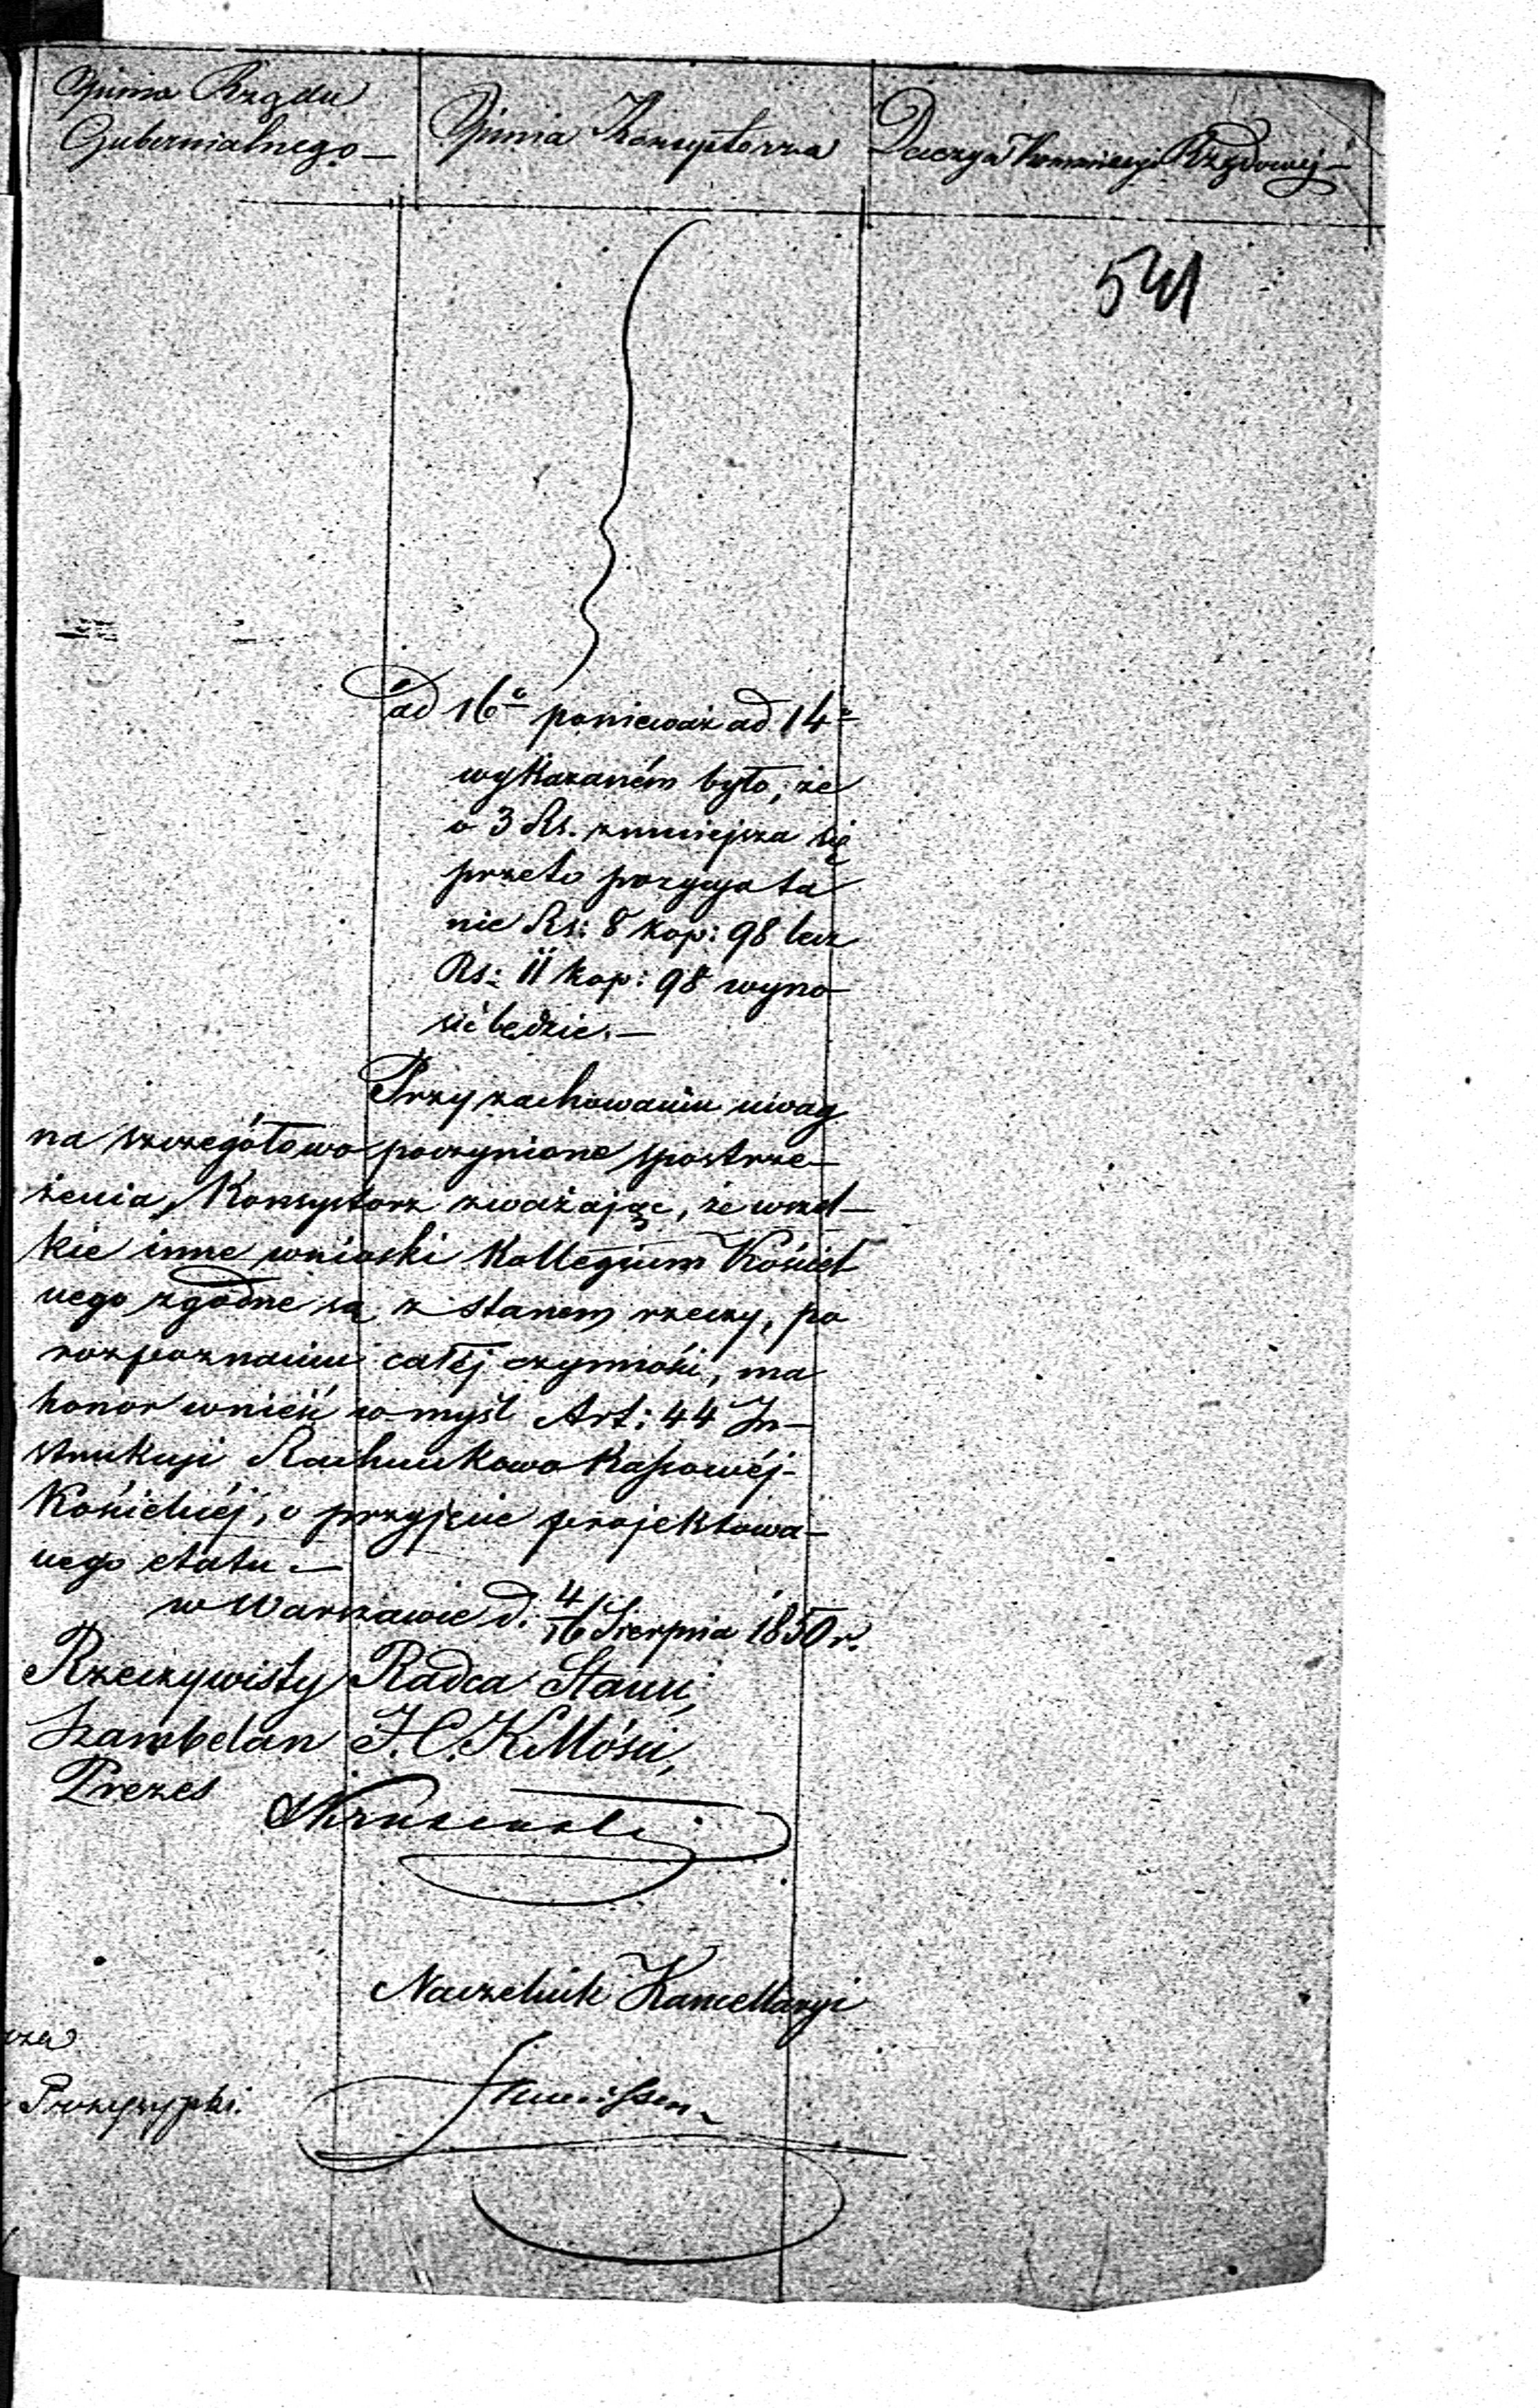 Opinia Rządu
Gubernialnego —
Opinia Konsystorza
Decyzya Kommissyi Rządowej —
541
ad 16º ponieważ ad 14º
wykazaném było, że
o 3 Rs. zmniejsza się
przeto pozycya ta
nie Rs: 8 kop: 98 lecz
Rs: 11 kop: 98 wyno
sić będzie. —
Przy zachowaniu uwag
na szczegółowo poczynione spostrze-
żenia, Konsystorz zważając, że wszel-
kie inne wnioski Kollegium Kościel
nego zgodne są z stanem rzeczy, po
rozpoznaniu całéj czynności, ma
honor wnieść w myśl Art: 44 In-
strukcji Rachunkowo Kassowéj-
Kościelnéj, o przyjęcie projektowa-
nego etatu. —
w Warszawie d. 4/16 Sierpnia 1850 r.
Rzeczywisty Radca Stanu,
Szambelan J. C. K Mości,
Prezes
Naczelnik Kancellaryi